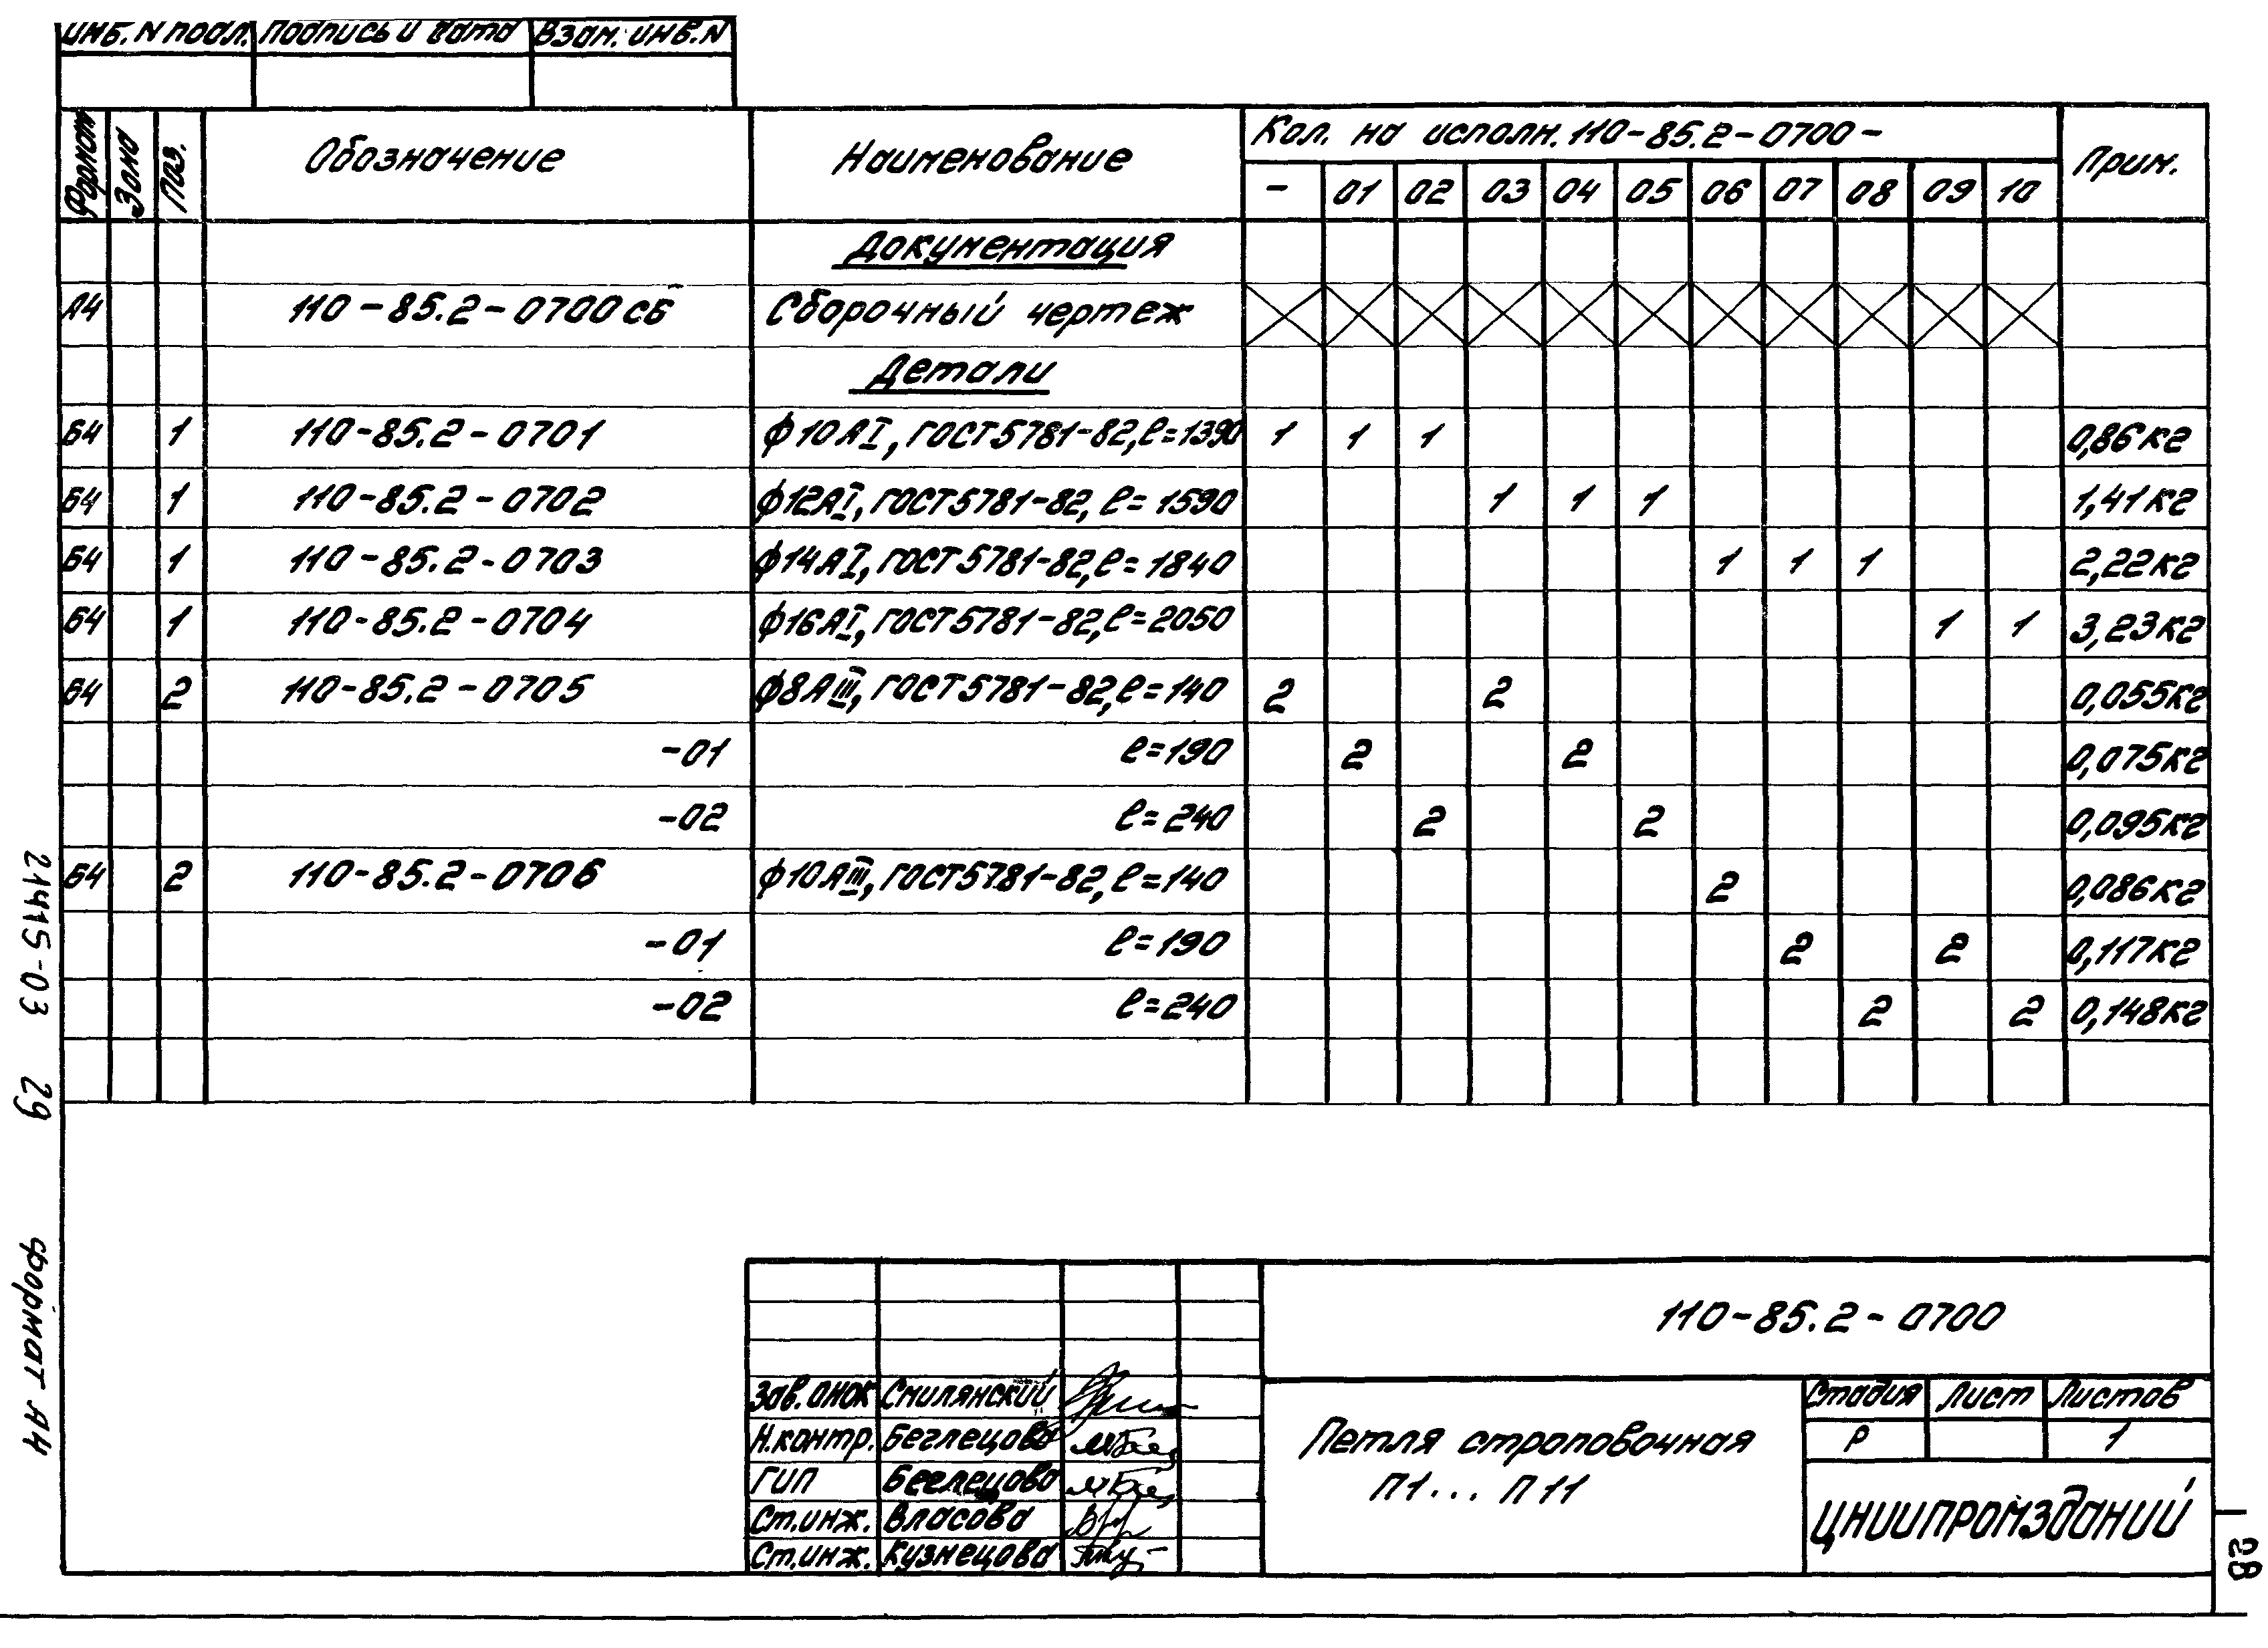 Инв. N подл. Подпись и дата Взам. инв. N
Формат Зона Поз. Обозначение Наименование Кол. на исполн. 110-85.2-0700- Прим.
- 01 02 03 04 05 06 07 08 09 10
Документация
А4 110-85.2-0700 СБ Сборочный чертеж
Детали
Б4 1 110-85.2-0701 ф10АI, ГОСТ 5781-82, ℓ=1390 1 1 1 0,86кг
Б4 1 110-85.2-0702 ф12АI, ГОСТ 5781-82, ℓ=1590 1 1 1 1,41кг
Б4 1 110-85.2-0703 ф14АI, ГОСТ 5781-82, ℓ=1840 1 1 1 2,22кг
Б4 1 110-85.2-0704 ф16АI, ГОСТ 5781-82, ℓ=2050 1 1 3,23кг
Б4 2 110-85.2-0705 ф8АIII, ГОСТ 5781-82, ℓ=140 2 2 0,055кг
-01 ℓ=190 2 2 0,075кг
-02 ℓ=240 2 2 0,095кг
Б4 2 110-85.2-0706 ф10АIII, ГОСТ 5781-82, ℓ=140 2 0,086кг
-01 ℓ=190 2 2 0,117кг
-02 ℓ=240 2 2 0,148кг
110-85.2-0700
Зав. ОНОК Смилянский
Н.контр. Беглецова
ГИП Беглецова
Ст.инж. Власова
Ст.инж. Кузнецова
Петля строповочная
П1... П11
Стадия Лист Листов
Р 1
ЦНИИПРОМЗДАНИЙ
21415-03 29
Формат А4
28